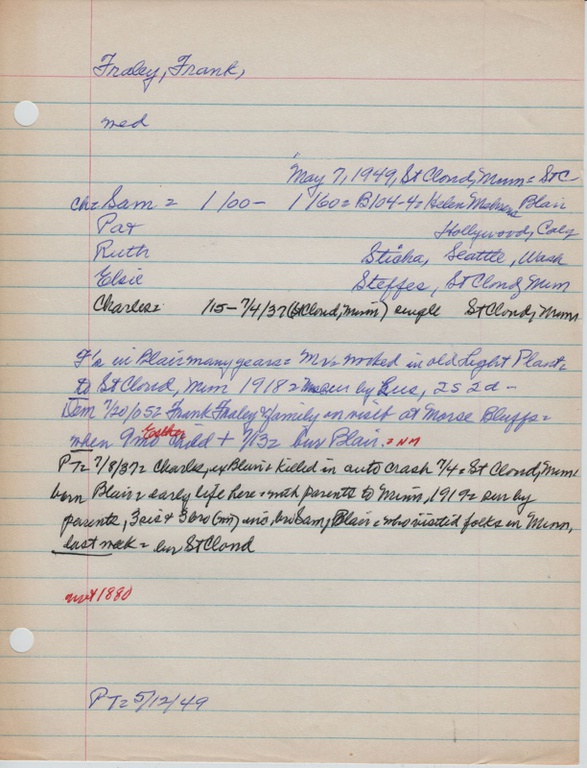 Fraley, Frank,
med
May 7, 1949, St Cloud, Minn = St C-
Ch = Sam = 1/00 - 1/60 = B104-4 = Helen Blair
Pat Hollywood, Calif
Ruth Sticha, Seattle, Wash
Elsie Steffes, St Cloud Minn
Charles = 1/15 - 7/4/37 (St Cloud, Minn) single St Cloud, Minn
F's in Blair many years = Mr = worked in old Light Plant =
to St Cloud, Minn 1918 = sur by 2s 2d -
Dem 7/20/05 = Frank Fraley & family on visit at Morse Bluffs =
when 9 mo Esther child + 7/13 = bur Blair. = NM
PT = 7/8/37 = Charles, ex Blair = killed in auto crash 7/4 = St Cloud, Minn =
born Blair = early life here = with parents to Minn, 1919 = sur by
parents, 3 sis & 3 bro (nn) inc, bro Sam, Blair = who visited folks in Minn,
last week = bur St Cloud
not 1880
PT = 5/12/49